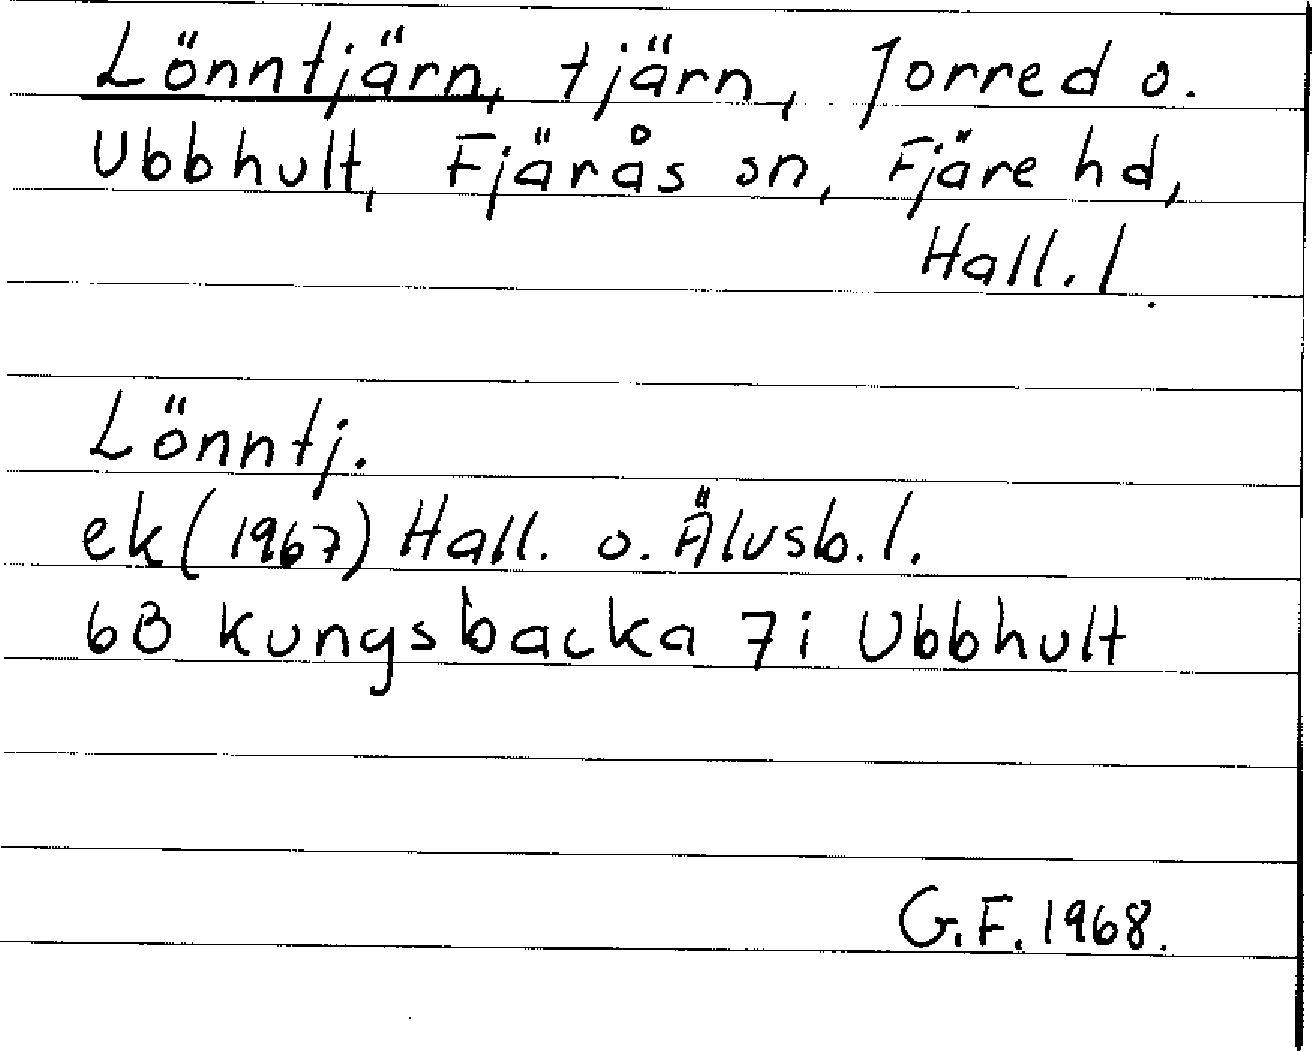 Lönntjärn, tjärn, Jorred o.
Ubbhult, Fjärås sn, Fjäre hd,
Hall. l.
Lönntj.
ek (1967) Hall. o. Älvsb. l.
6B Kungsbacka 7i Ubbhult
G.F. 1968.